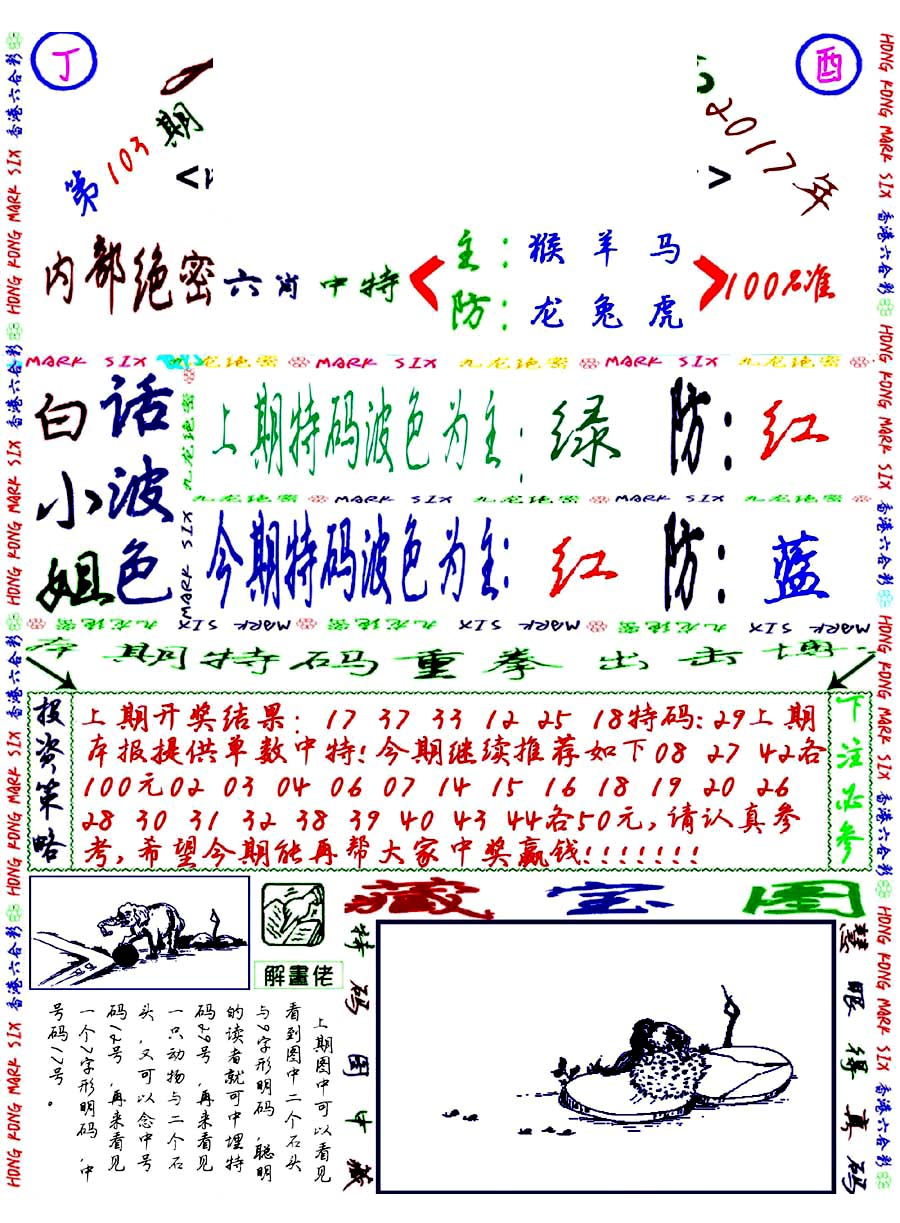 丁
酉
第103期
2017年
内部绝密六肖中特
主：猴羊马
防：龙兔虎
100%准
MARK SIX 九龙绝密 MARK SIX 九龙绝密 MARK SIX 九龙绝密
白小姐
话波色
上期特码波色为主：绿 防：红
九龙绝密 MARK SIX 九龙绝密 MARK SIX 九龙绝密
今期特码波色为主：红 防：蓝
九龙绝密 MARK SIX 九龙绝密 MARK SIX 九龙绝密 MARK SIX
期特码重拳出击
投资策略
上期开奖结果：17 37 33 12 25 18特码：29上期
本报提供单数中特！今期继续推荐如下08 27 42各
100元02 03 04 06 07 14 15 16 18 19 20 26
28 30 31 32 38 39 40 43 44各50元，请认真参
考，希望今期能再帮大家中奖赢钱！！！！！！！
下注必参
解畫佬
藏宝图
特码图中藏
慧眼得真码
上期图中可以看见
看到图中二个石头
与9字形明码，聪明
的读者就可中埋特
码29号，再来看见
一只动物与二个石
头，又可以念中号
码12号，再来看见
一个7字形明码，中
号码17号。
HONG KONG MARK SIX 香港六合彩 HONG KONG MARK SIX 香港六合彩 HONG KONG MARK SIX 香港六合彩 HONG KONG MARK SIX 香港六合彩
HONG KONG MARK SIX 香港六合彩 HONG KONG MARK SIX 香港六合彩 HONG KONG MARK SIX 香港六合彩 HONG KONG MARK SIX 香港六合彩